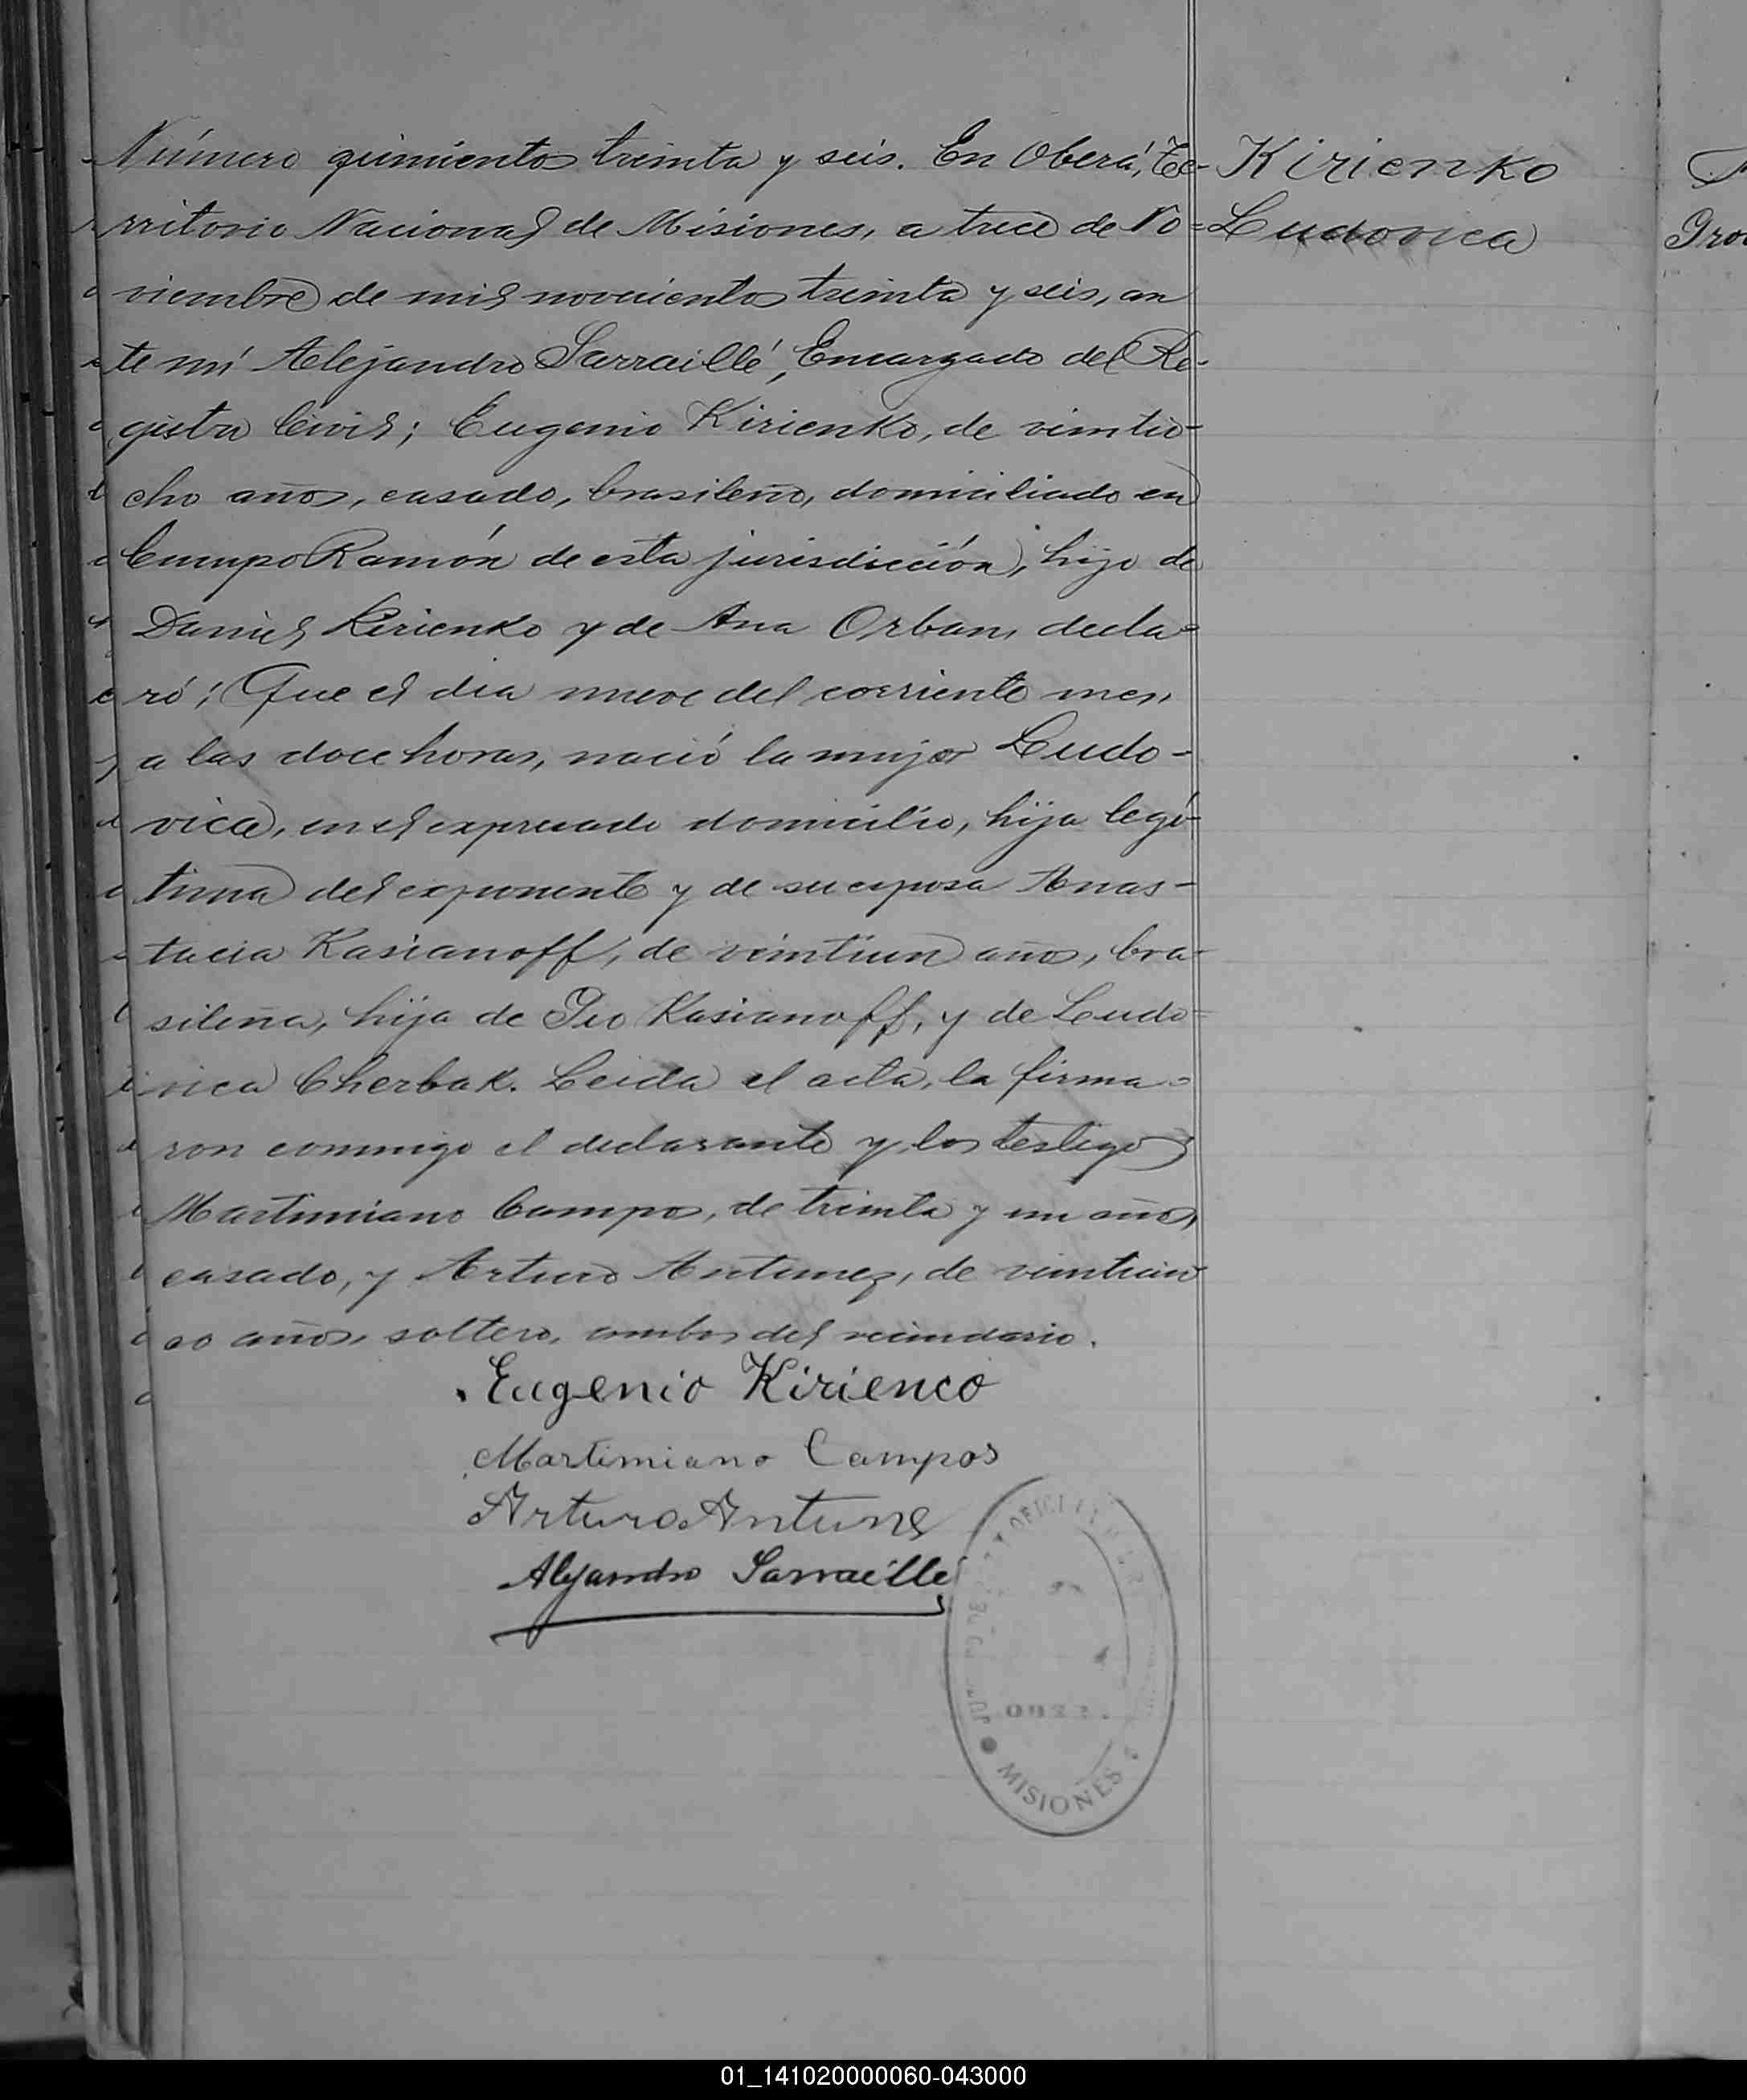 Número quinientos treinta y seis. En Oberá, Te-
rritorio Nacional de Misiones, a trece de No-
viembre de mil novecientos treinta y seis, an
te mí Alejandro Sarraillé, Encargado del Re-
gistro Civil; Eugenio Kirienko, de veintio-
cho años, casado, brasileño, domiciliado en
Campo Ramón de esta jurisdicción, hijo de
Daniel Kirienko y de Ana Orban, decla-
ró: Que el dia nueve del corriente mes,
a las doce horas, nació la mujer Ludo-
vica, en el expresado domicilio, hija legí-
tima del exponente y de su esposa Anas-
tacia Kasianoff, de veintiun años, bra-
sileña, hija de Kasianoff, y de Ludo-
vica Cherbak. Leida el acta, la firma-
ron conmigo el declarante y los testigos
Martimiano Campos, de treinta y un años,
casado, y Arturo Antunez, de veinticin
co años, soltero, ambos del vecindario.
Eugenio Kirienco
Martimiano Campos
Arturo Antune
Alejandro Sarraillé
Kirienko
Ludovica
MISIONES
01_141020000060-043000